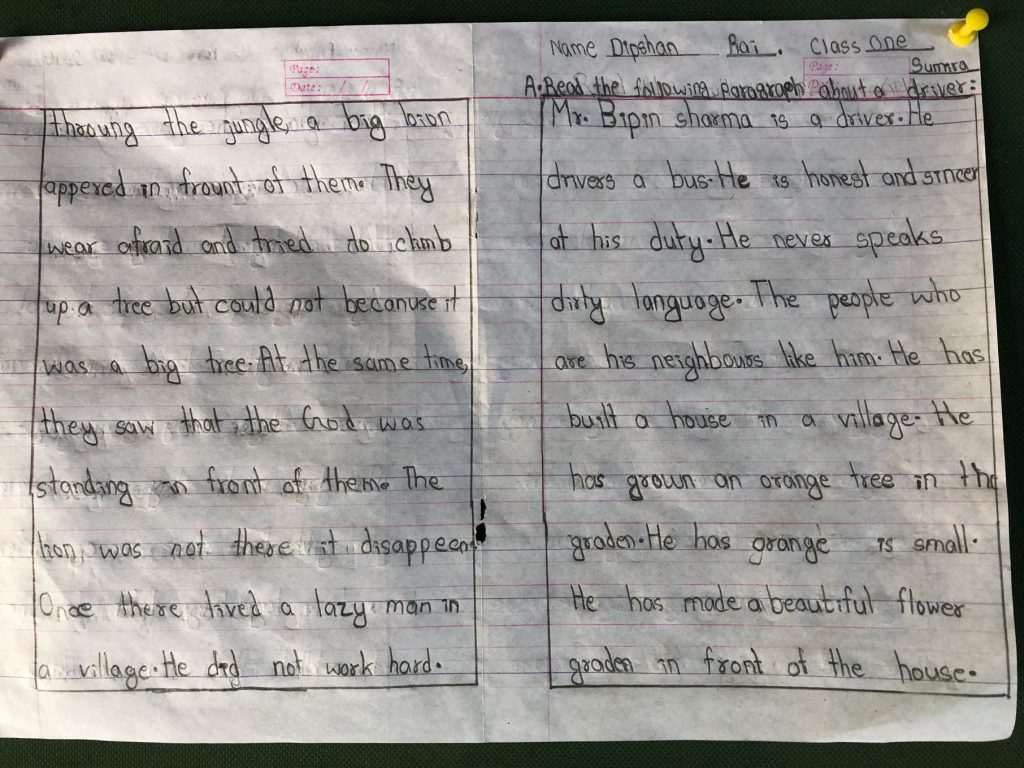 Page:
Date: / /
throung the jungle, a big lion
appered in frount of them. They
wear afraid and tried do climb
up a tree but could not becanuse it
was a big tree. At the same time,
they saw that the God was
standing in front of them. The
lion was not there it disappeend
Once there lived a lazy man in
a village. He did not work hard.
Name Dipshan Rai. Class One
Page: Sumnra
A. Read the following paragraph about a driver:
Mr. Bipin sharma is a driver. He
drivers a bus. He is honest and sincer
at his duty. He never speaks
dirty language. The people who
are his neighbours like him. He has
built a house in a village. He
has grown an orange tree in the
graden. He has orange is small.
He has made a beautiful flower
graden in front of the house.